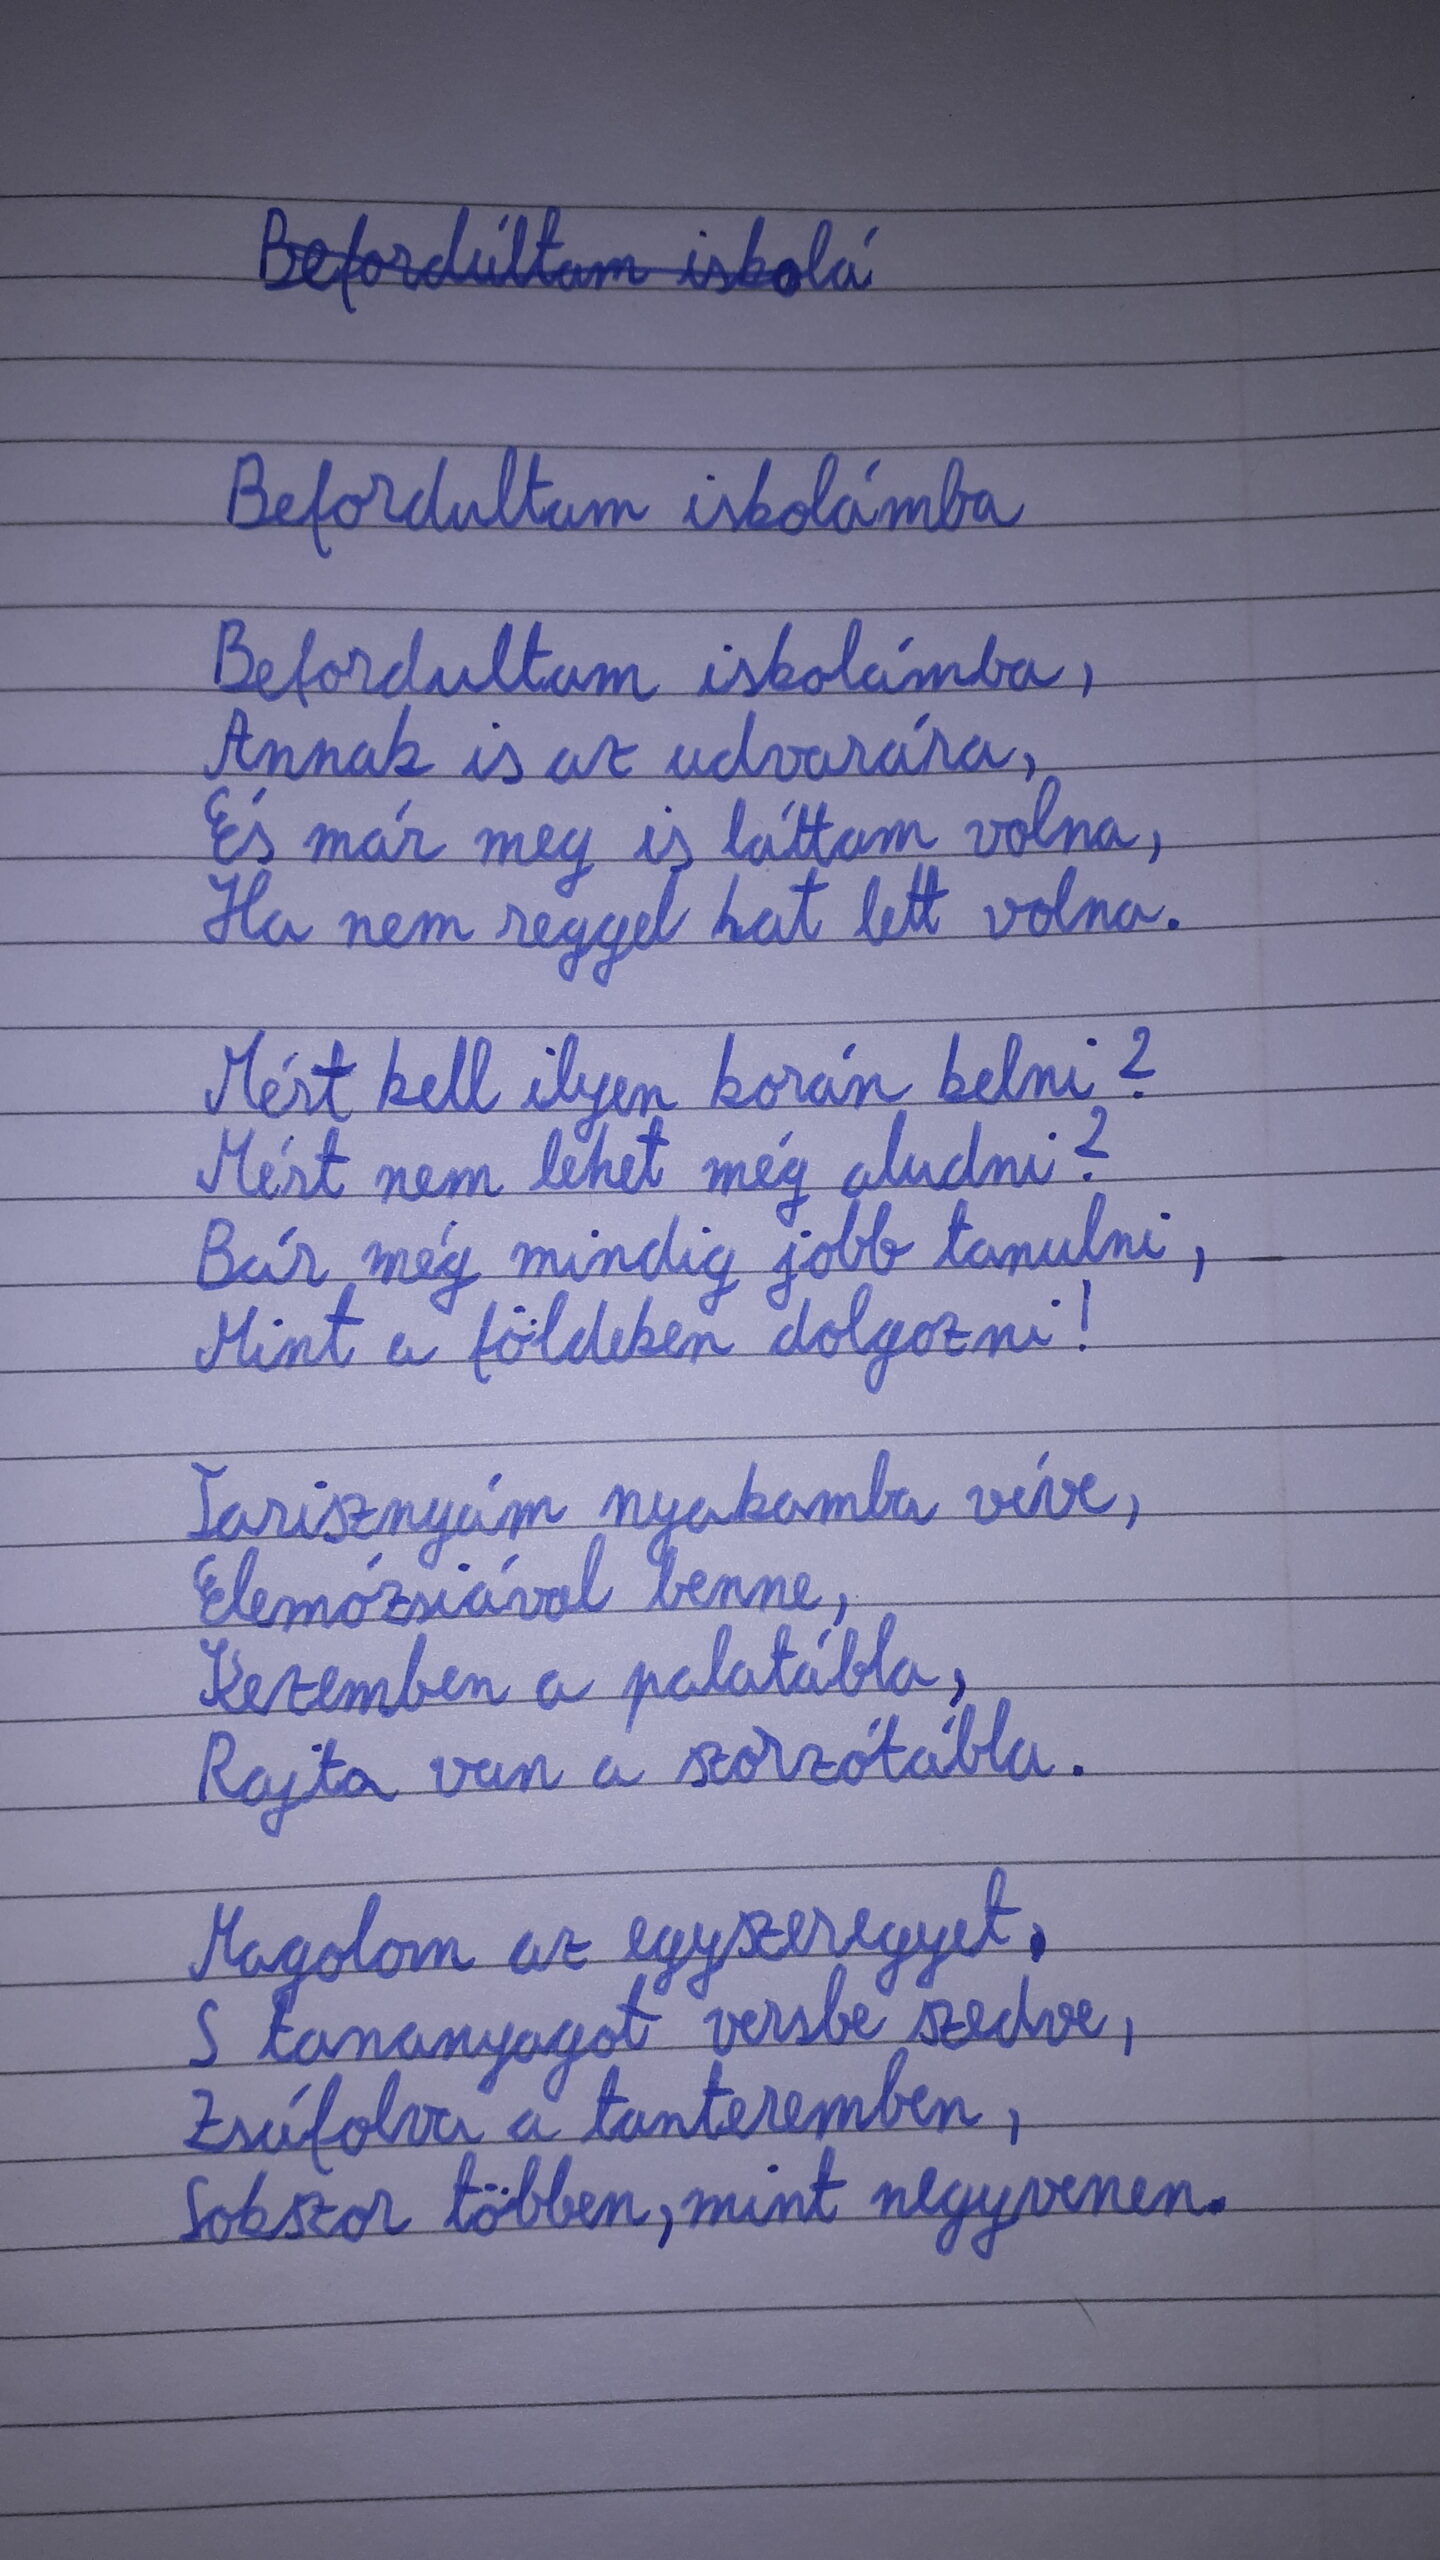 Befordúltam iskolá
Befordultam iskolámba
Befordultam iskolámba,
Annak is az udvarára,
És már meg is láttam volna,
Ha nem reggel hat lett volna.
Mért kell ilyen korán kelni?
Mért nem lehet még aludni?
Bár még mindig jobb tanulni,
Mint a földeken dolgozni!
Tarisznyám nyakamba véve,
Elemózsiával benne,
Kezemben a palatábla,
Rajta van a szorzótábla.
Magolom az egyszeregyet,
S tananyagot versbe szedve,
Zsúfolva a tanteremben,
Sokszor többen, mint negyvenen.